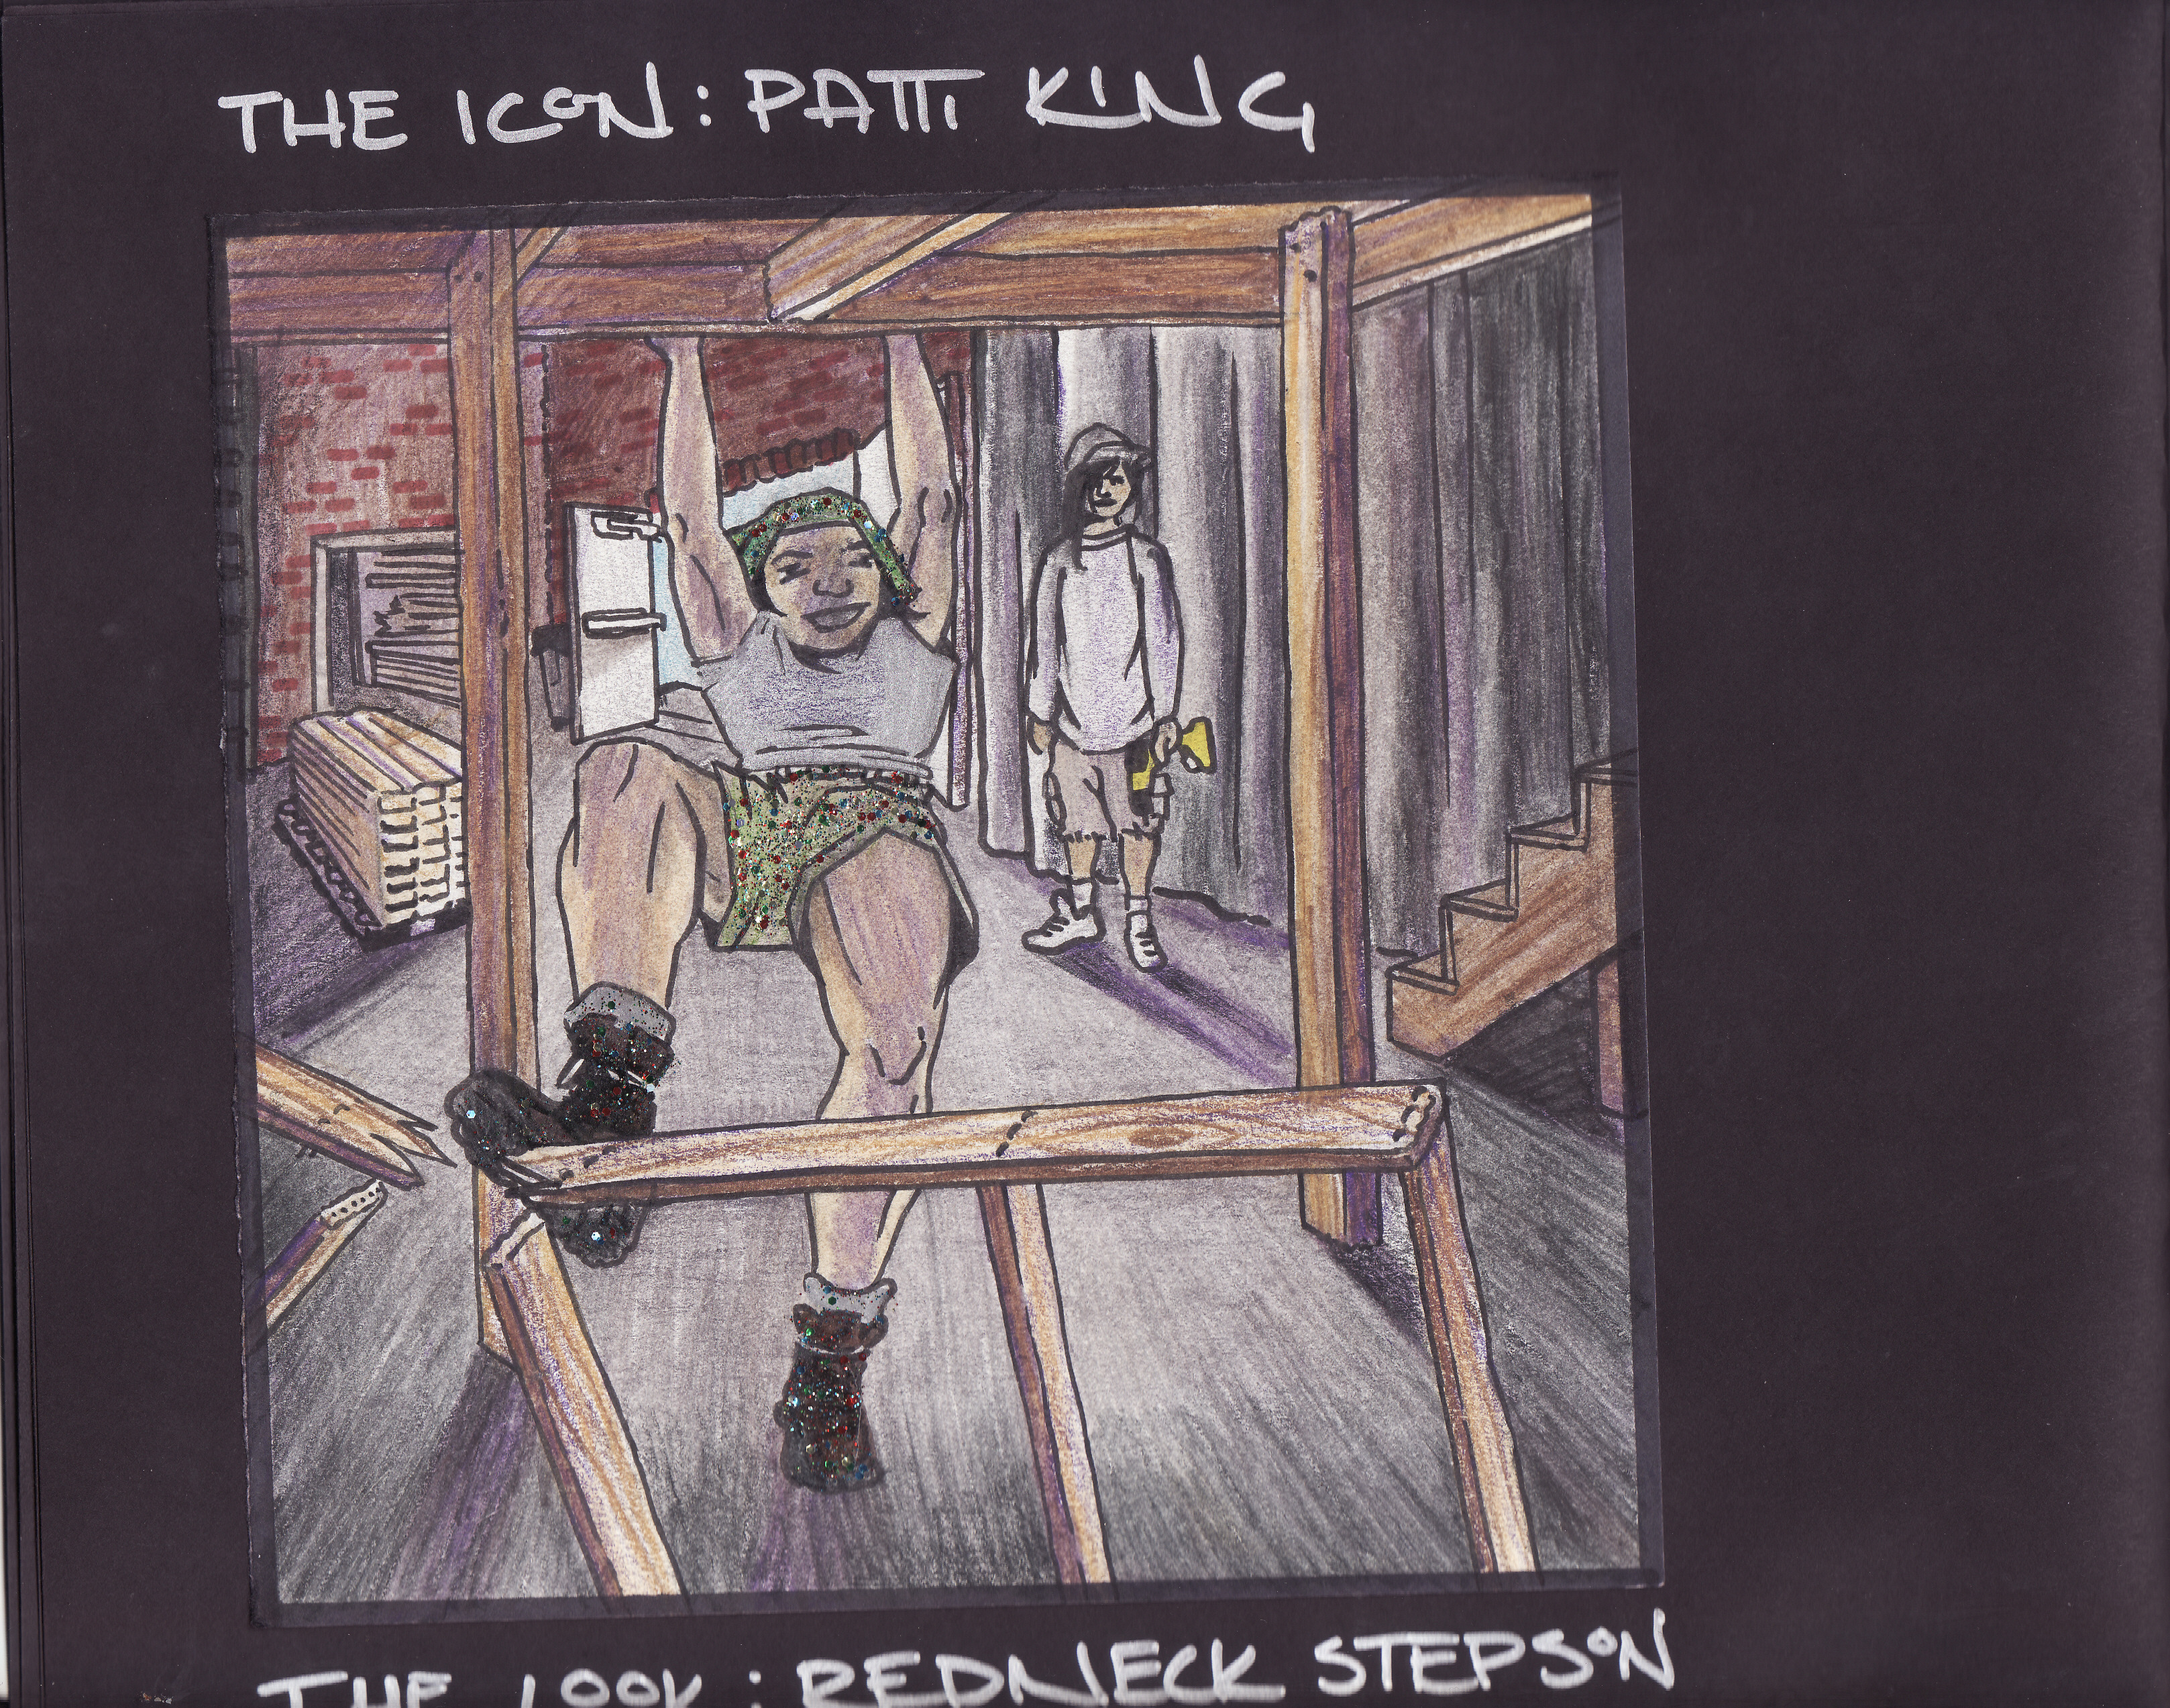 THE ICON: PATTI KING
THE LOOK: REDNECK STEPSON